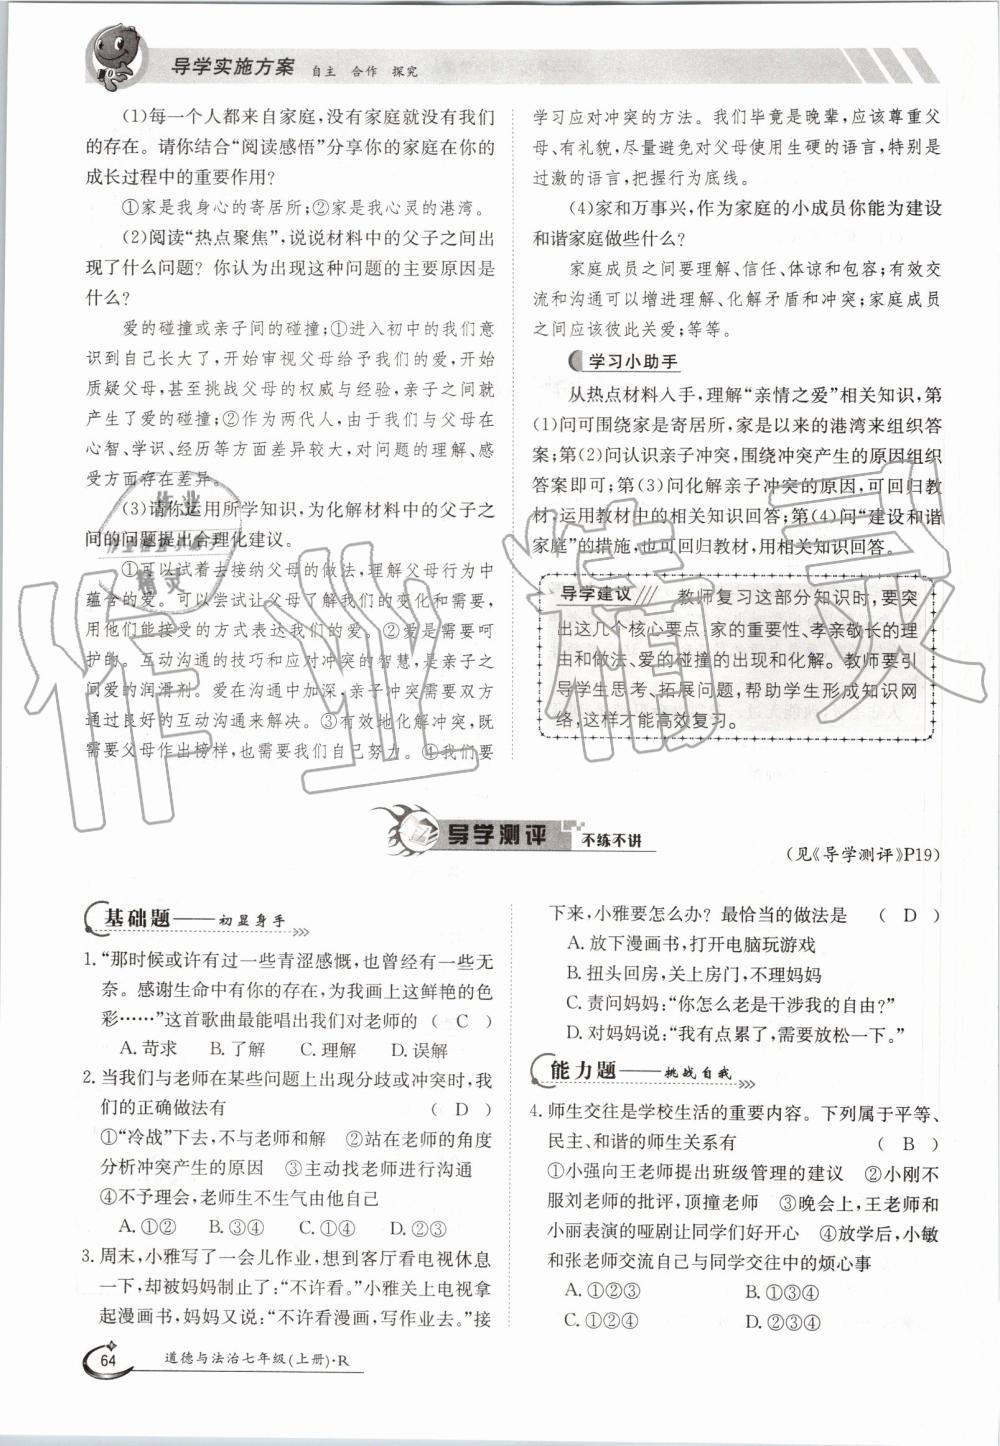 导学实施方案 自主 合作 探究
(1)每一个人都来自家庭,没有家庭就没有我们
的存在。请你结合“阅读感悟”分享你的家庭在你的
成长过程中的重要作用?
①家是我身心的寄居所;②家是我心灵的港湾。
(2)阅读“热点聚焦”,说说材料中的父子之间出
现了什么问题?你认为出现这种问题的主要原因是
什么?
爱的碰撞或亲子间的碰撞;①进入初中的我们意
识到自己长大了,开始审视父母给予我们的爱,开始
质疑父母,甚至挑战父母的权威与经验,亲子之间就
产生了爱的碰撞;②作为两代人,由于我们与父母在
心智、学识、经历等方面差异较大,对问题的理解、感
受方面存在差异。
(3)请你运用所学知识,为化解材料中的父子之
间的问题提出合理化建议。
①可以试着去接纳父母的做法,理解父母行为中
蕴含的爱。可以尝试让父母了解我们的变化和需要,
用他们能接受的方式表达我们的爱。②爱是需要呵
护的。互动沟通的技巧和应对冲突的智慧,是亲子之
间爱的润滑剂。爱在沟通中加深,亲子冲突需要双方
通过良好的互动沟通来解决。③有效地化解冲突,既
需要父母作出榜样,也需要我们自己努力。④我们要
学习应对冲突的方法。我们毕竟是晚辈,应该尊重父
母、有礼貌,尽量避免对父母使用生硬的语言,特别是
过激的语言,把握行为底线。
(4)家和万事兴,作为家庭的小成员你能为建设
和谐家庭做些什么?
家庭成员之间要理解、信任、体谅和包容;有效交
流和沟通可以增进理解、化解矛盾和冲突;家庭成员
之间应该彼此关爱;等等。
学习小助手
从热点材料入手,理解“亲情之爱”相关知识,第
(1)问可围绕家是寄居所,家是以来的港湾来组织答
案;第(2)问认识亲子冲突,围绕冲突产生的原因组织
答案即可;第(3)问化解亲子冲突的原因,可回归教
材,运用教材中的相关知识回答;第(4)问“建设和谐
家庭”的措施,也可回归教材,用相关知识回答。
导学建议/// 教师复习这部分知识时,要突
出这几个核心要点:家的重要性、孝亲敬长的理
由和做法、爱的碰撞的出现和化解。教师要引
导学生思考、拓展问题,帮助学生形成知识网
络,这样才能高效复习。
导学测评 不练不讲
(见《导学测评》P19)
基础题——初显身手
1. “那时候或许有过一些青涩感慨,也曾经有一些无
奈。感谢生命中有你的存在,为我画上这鲜艳的色
彩……”这首歌曲最能唱出我们对老师的 ( C )
A. 苛求 B. 了解 C. 理解 D. 误解
2. 当我们与老师在某些问题上出现分歧或冲突时,我
们的正确做法有 ( D )
①“冷战”下去,不与老师和解 ②站在老师的角度
分析冲突产生的原因 ③主动找老师进行沟通
④不予理会,老师生不生气由他自己
A. ①② B. ③④ C. ①④ D. ②③
3. 周末,小雅写了一会儿作业,想到客厅看电视休息
一下,却被妈妈制止了:“不许看。”小雅关上电视拿
起漫画书,妈妈又说:“不许看漫画,写作业去。”接
下来,小雅要怎么办?最恰当的做法是 ( D )
A. 放下漫画书,打开电脑玩游戏
B. 扭头回房,关上房门,不理妈妈
C. 责问妈妈:“你怎么老是干涉我的自由?”
D. 对妈妈说:“我有点累了,需要放松一下。”
能力题——挑战自我
4. 师生交往是学校生活的重要内容。下列属于平等、
民主、和谐的师生关系有 ( B )
①小强向王老师提出班级管理的建议 ②小刚不
服刘老师的批评,顶撞老师 ③晚会上,王老师和
小丽表演的哑剧让同学们好开心 ④放学后,小敏
和张老师交流自己与同学交往中的烦心事
A. ①②③ B. ①③④
C. ①②④ D. ②③④
64 道德与法治七年级(上册)·R
作业精灵
作业
精灵